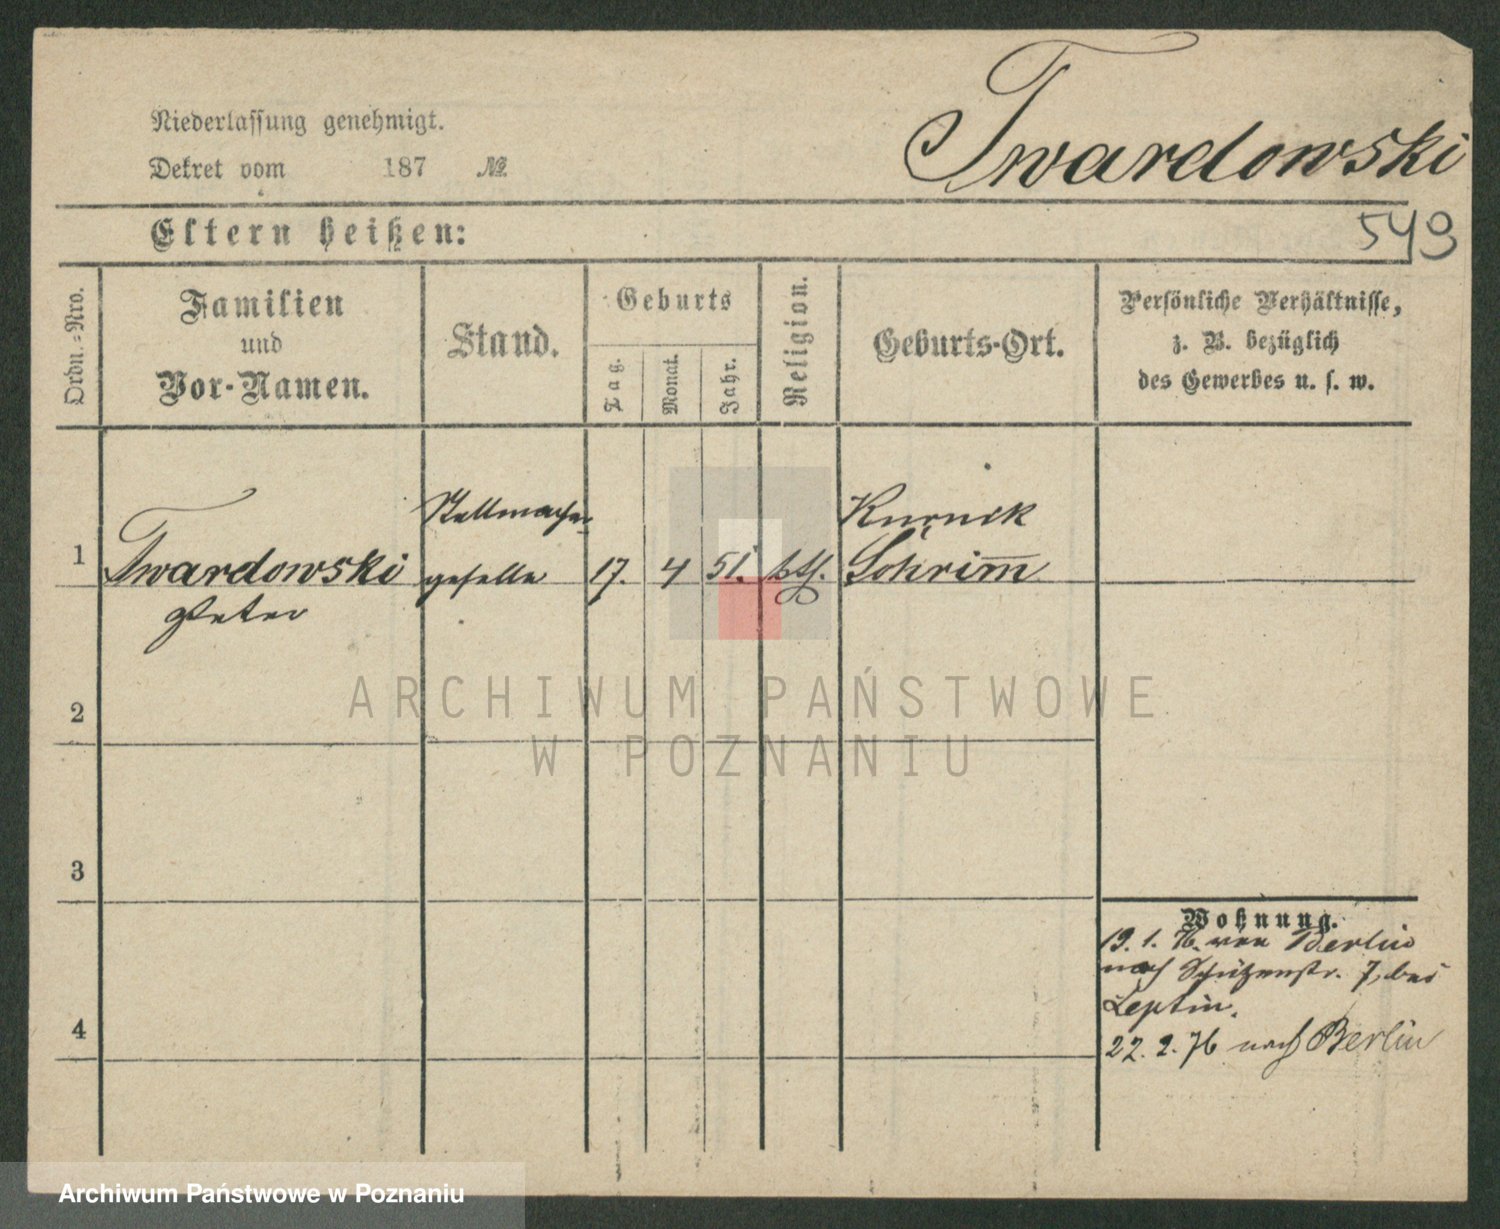 Twardowski
Niederlassung genehmigt.
Dekret vom 187 №
549
Eltern heißen:
Ordn.-Nro.
Familien
und
Vor-Namen.
Stand.
Geburts
Tag.
Monat.
Jahr.
Religion.
Geburts-Ort.
Persönliche Verhältnisse,
z. B. bezüglich
des Gewerbes u. s. w.
1
Twardowski
Peter
Stellmacher
geselle
17.
4
51.
kth.
Kurnik
Schrimm
2
3
4
Wohnung.
19. 1. 76. von Berlin
nach Schützenstr. 7, bei
Leptin.
22. 2. 76 nach Berlin
ARCHIWUM PAŃSTWOWE
W POZNANIU
Archiwum Państwowe w Poznaniu